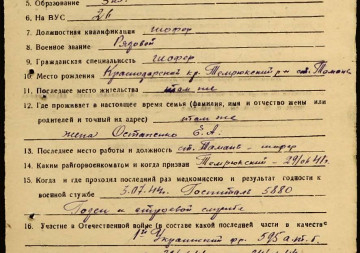 5. Образование
6. На ВУС 26
7. Должностная квалификация шофер
8. Военное звание Рядовой
9. Гражданская специальность шофер
10. Место рождения Краснодарский кр. Темрюкский р-н ст. Тамань
11. Последнее место жительства там же
12. Где проживает в настоящее время семья (фамилия, имя и отчество жены или
родителей и точный их адрес) там же
жена Остапенко Е.А.
13. Последнее место работы и должность ст. Тамань - шофер
14. Каким райгорвоенкоматом и когда призван Темрюкский - 29/VIII 41 г.
15. Когда и где проходил последний раз медкомиссию и результат годности к
военной службе 3.07.44г. Госпиталь 5880
Годен к строевой службе
16. Участие в Отечественной войне (в составе какой последней части в качестве
1й Украинский фр. 595